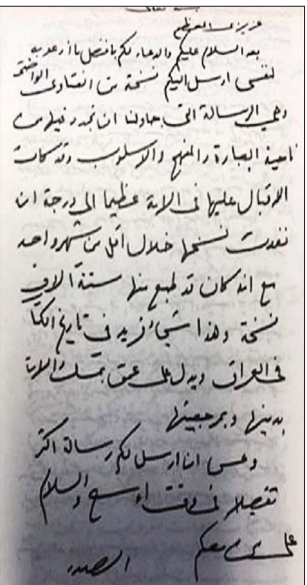 بسمه تعالى
عزيزي المعظم
بعد السلام عليكم والدعاء لكم بأفضل ما أدعو به
لنفسي ارسل اليكم نسخة من الفتاوى الواضحة
وهي الرسالة التي حاولنا ان نجدد فيها من
ناحية العبارة والمنهج والاسلوب وقد كان
الاقبال عليها في الامة عظيما الى درجة ان
نفدت نسخها خلال اقل من شهر واحد
مع انه كان قد طبع منها ستة الاف
نسخة وهذا شيء فريد في تاريخ الكتاب
في العراق ويدل على عمق تمسك الامة
بدينها وبمرجعيتها
وعسى ان ارسل لكم رسالة اكثر
تفصيلا في وقت اوسع والسلام
عليكم
الصدر